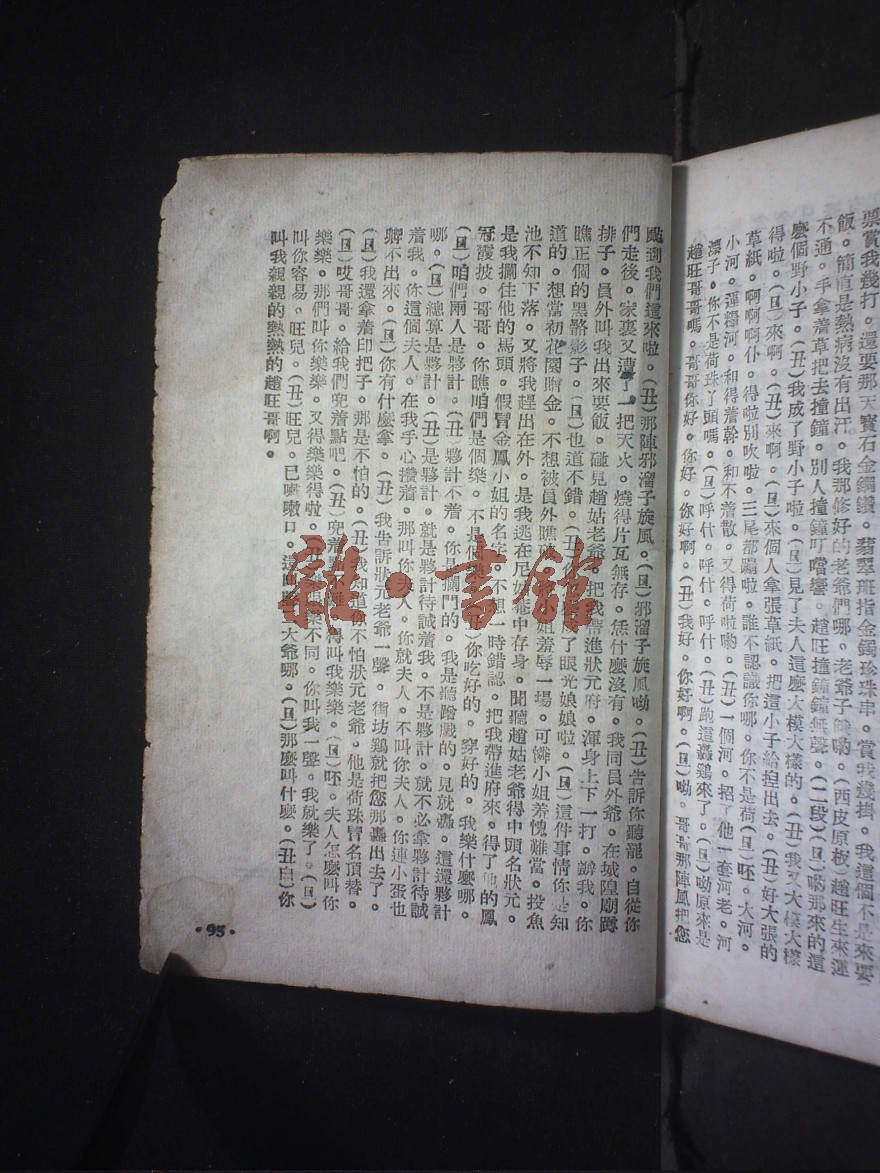 票賞我幾打。還要那天寶石金鋼鑽。翡翠班指金鐲珍珠串。賞我幾掛。我這個不是來要
飯。簡直是熱病沒有出汗。我那修好的老爺們哪。老爺子餓喲。(西皮原板)趙旺生來運
不通。手拿着草把去撞鐘。別人撞鐘叮噹響。趙旺撞鐘鐘無聲。(二段)(旦)喲那來的這
麼個野小子。(丑)我成了野小子啦。(旦)見了夫人這麼大模大樣的。(丑)我又大模大樣
得啦。(旦)來啊。(丑)來啊。(旦)來個人拿張草紙。把這小子給揑出去。(丑)好大張的
草紙。啊啊啊仆。得啦別吹啦。三尾都蹦啦。誰不認識你哪。你不是荷(旦)呸。大河。
小河。蓮糧河。和得着幹。和不着散。又得荷啦喲。(丑)一個河。招了他一套河老。河
漂子。你不是荷珠丫頭嗎。(旦)呼什。呼什。呼什。(丑)跑這轟鷄來了。(旦)喲原來是
趙旺哥哥嗎。哥哥你好。你好。你好啊。(丑)我好。你好啊。(旦)喲。哥哥那陣風把您
颳到我們這來啦。(丑)那陣邪溜子旋風。(旦)邪溜子旋風呦。(丑)告訴你聽罷。自從你
們走後。家裏又遭了一把天火。燒得片瓦無存。恁什麼沒有。我同員外爺。在城隍廟蹲
排子。員外叫我出來要飯。碰見趙姑老爺。把我帶進狀元府。渾身上下一打。辦我。你
瞧正個的黑骼影子。(旦)也道不錯。(丑)你 了眼光娘娘啦。(旦)這件事情你是知
道的。想當初花園贈金。不想被員外瞧 小姐羞辱一場。可憐小姐羞愧難當。投魚
池不知下落。又將我趕出在外。是我逃在尼姑菴中存身。聞聽趙姑老爺得中頭名狀元。
是我攔住他的馬頭。假冒金鳳小姐的名字。不想一時錯認。把我帶進府來。得了他的鳳
冠霞披。哥哥。你瞧咱們是個樂。不是個 你吃好的。穿好的。我樂什麼哪。
(旦)咱們兩人是夥計。(丑)夥計不着。你是攔門的。我是聽蹭戲的。見就轟。這還夥計
哪。(旦)總算是夥計。(丑)是夥計。就是夥計待誠着我。不是夥計。就不必拿夥計待誠
着我。你這個夫人。在我手心攢着。那叫你夫人。你就夫人。不叫你夫人。你連小蛋也
卿不出來。(旦)你有什麼拿。(丑)我告訴狀元老爺一聲。街坊鷄就把您那轟出去了。
(旦)我還拿着印把子。那是不怕的。(丑)我知道你不怕狀元老爺。他是荷珠冒名頂替。
(旦)哎哥哥。給我們兜着點吧。(丑)兜着 得叫我樂樂。(旦)呸。夫人怎麼叫你
樂樂。那們叫你樂樂。又得樂樂得啦。 樂不同。你叫我一聲。我就樂了。(旦)
叫你容易。旺兒。(丑)旺兒。已嘛嗽口。這 大爺哪。(旦)那麼叫什麼。(丑白)你
叫我親親的熱熱的趙旺哥啊。
•95•
雜•書館